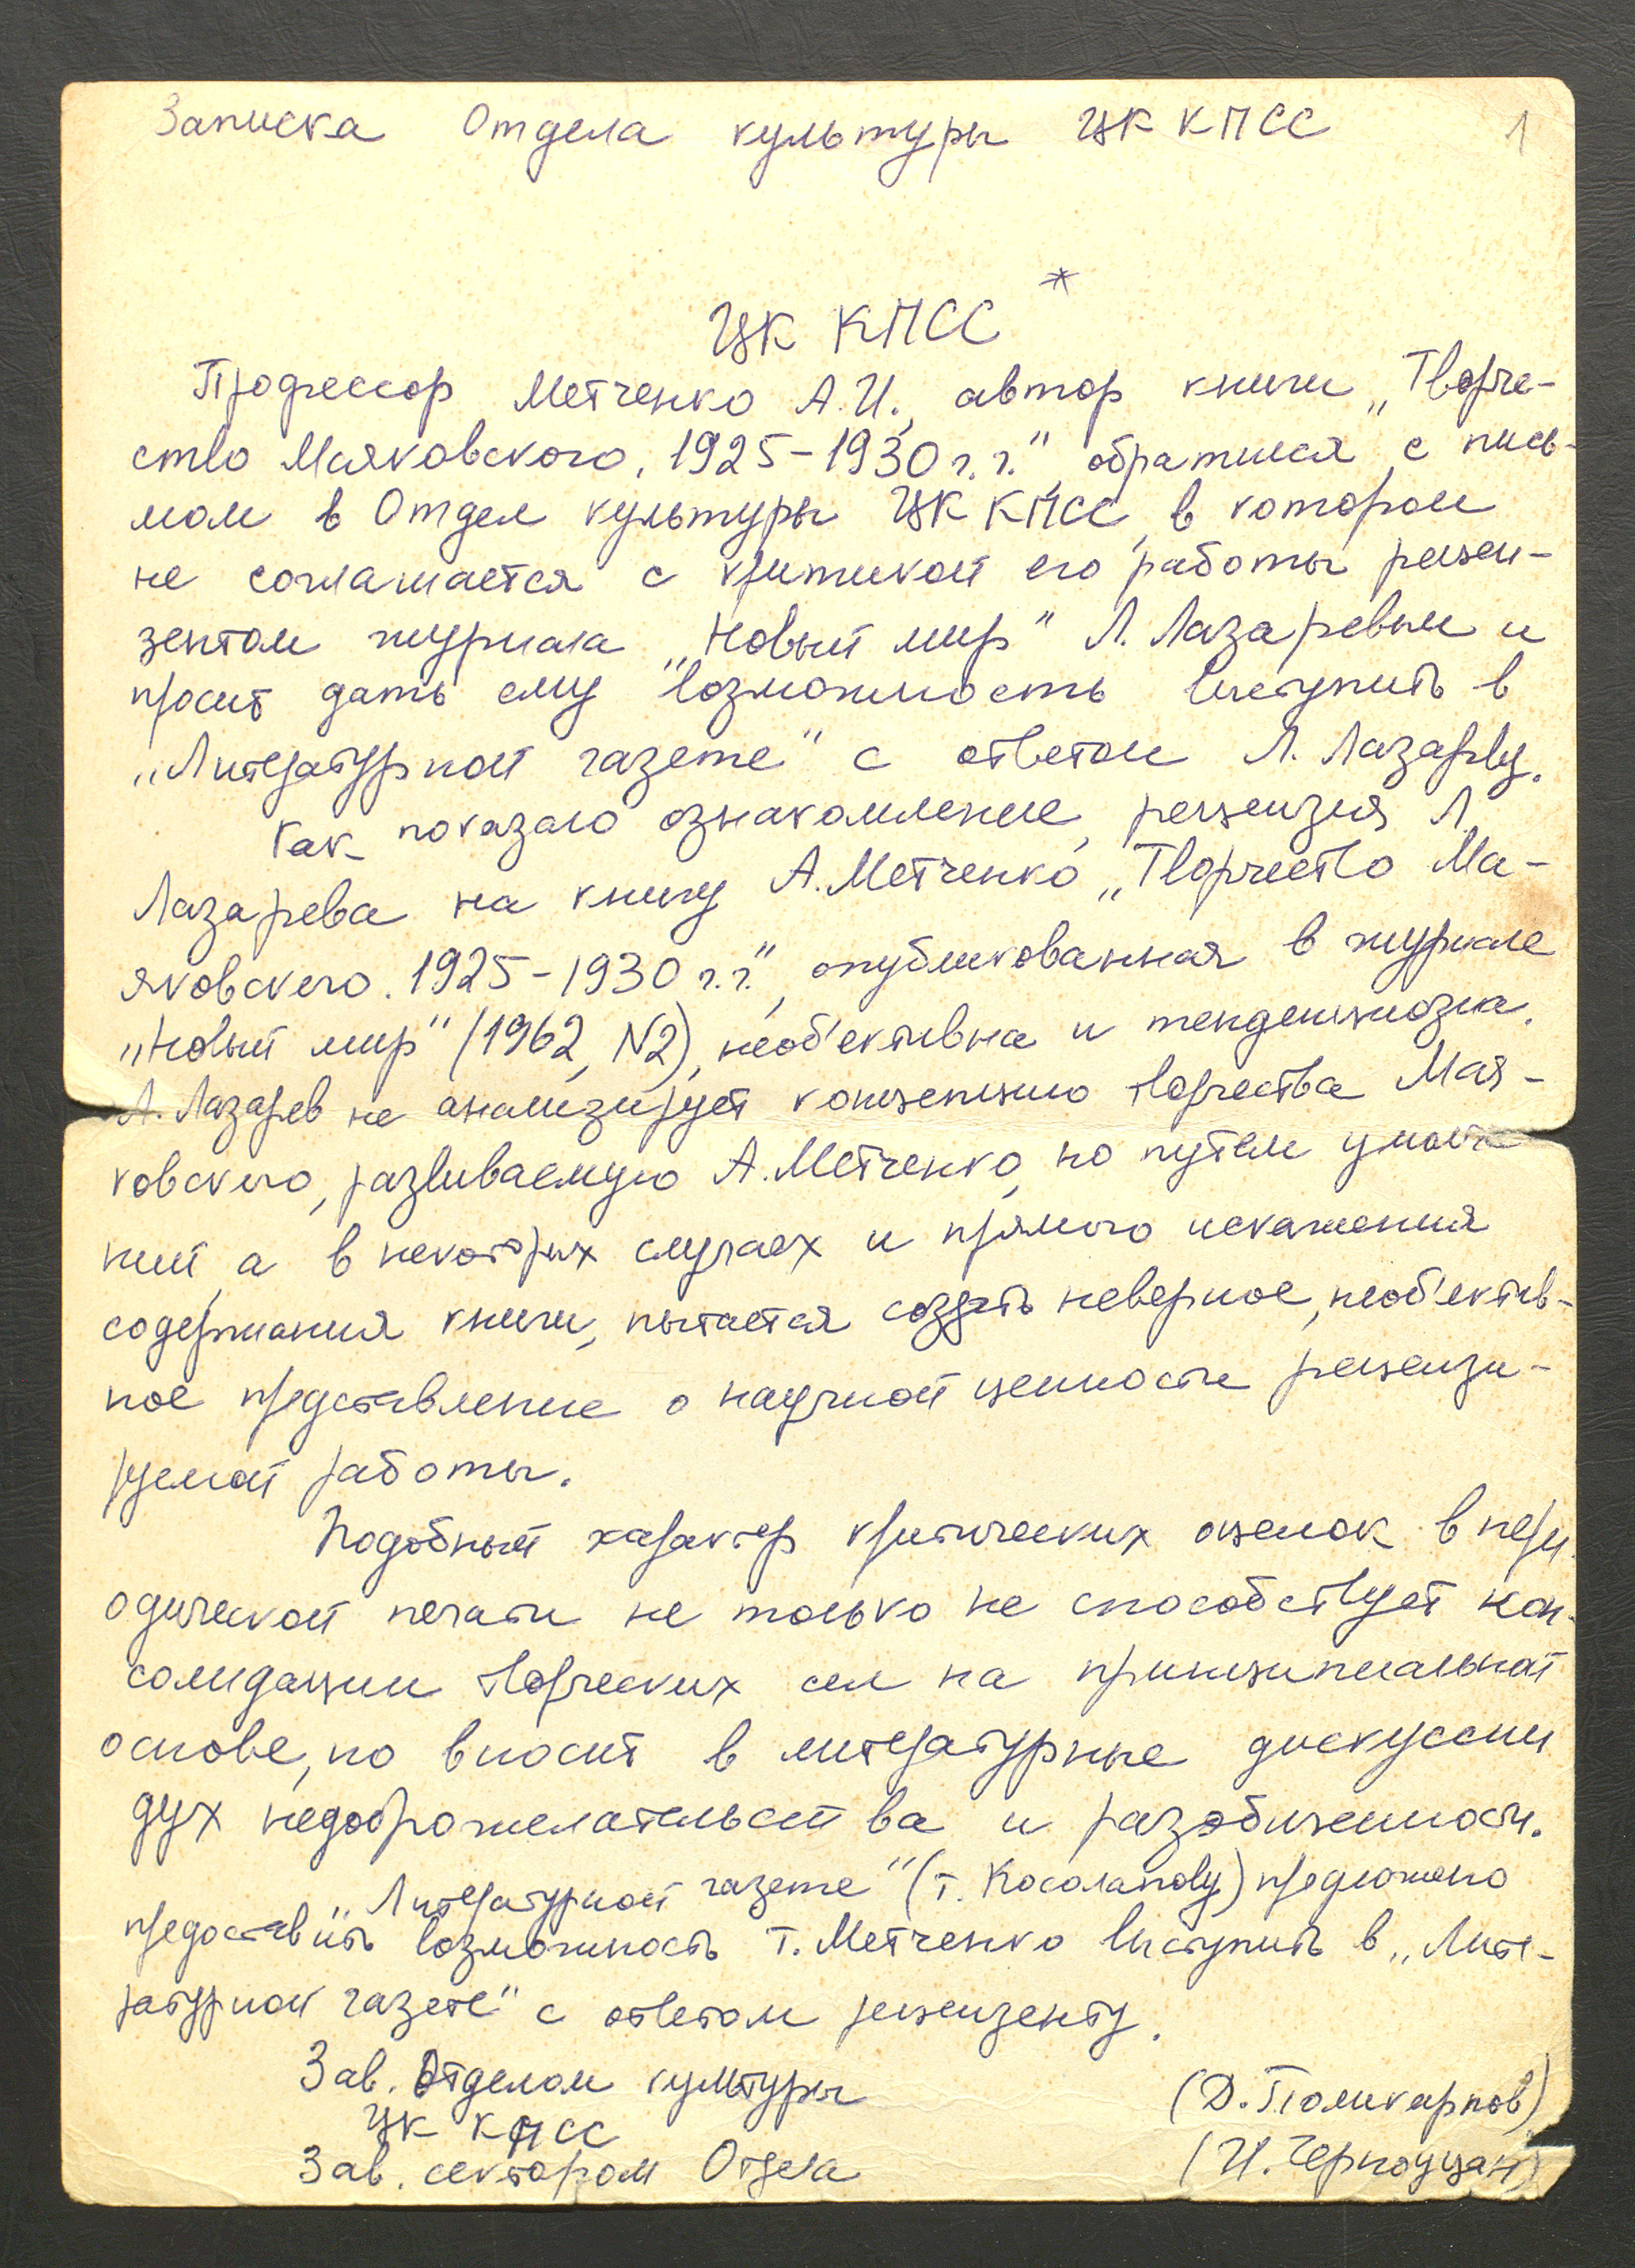 Записка Отдела культуры ЦК КПСС 1
ЦК КПСС *
Профессор Метченко А.И., автор книги „Творче-
ство Маяковского. 1925-1930 г.г.", обратился с пись-
мом в Отдел культуры ЦК КПСС, в котором
не соглашается с критикой его работы рецен-
зентом журнала „Новый мир" Л. Лазаревым и
просит дать ему возможность выступить в
„Литературной газете" с ответом Л. Лазареву.
Как показало ознакомление, рецензия Л.
Лазарева на книгу А. Метченко „Творчество Ма-
яковского. 1925-1930 г.г.", опубликованная в журнале
„Новый мир" (1962, N2), необ'ективна и тенденциозна.
Л. Лазарев не анализирует концепцию творчества Мая-
ковского, развиваемую А. Метченко, но путем умолча-
ний, а в некоторых случаях и прямого искажения
содержания книги, пытается создать неверное, необ'ектив-
ное представление о научной ценности рецензи-
руемой работы.
Подобный характер критических оценок в пери-
одической печати не только не способствует кон-
солидации творческих сил на принципиальной
основе, но вносит в литературные дискуссии
дух недоброжелательства и разобщенности.
„Литературной газете" (т. Косолапову) предложено
предоставить возможность т. Метченко выступить в „Лите-
ратурной газете" с ответом рецензенту.
Зав. Отделом культуры
ЦК КПСС (Д. Поликарпов)
Зав. сектором Отдела (И. Черноуцан)